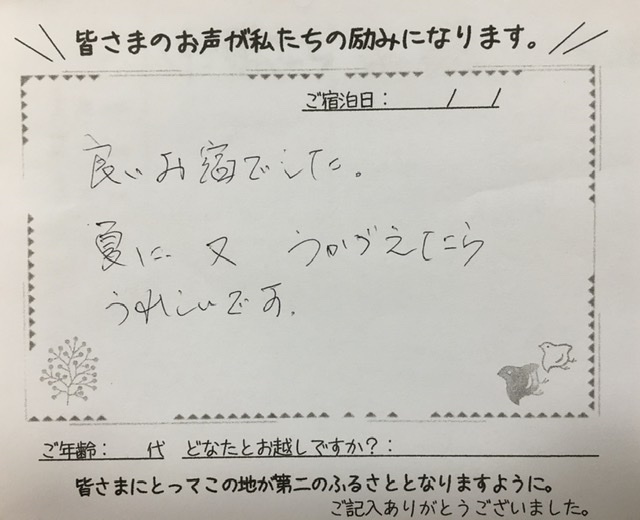 皆さまのお声が私たちの励みになります。
ご宿泊日: / /
良いお宿でした。
夏に又 うかがえたら
うれしいです.
ご年齢: 代 どなたとお越しですか?:
皆さまにとってこの地が第二のふるさととなりますように。
ご記入ありがとうございました。